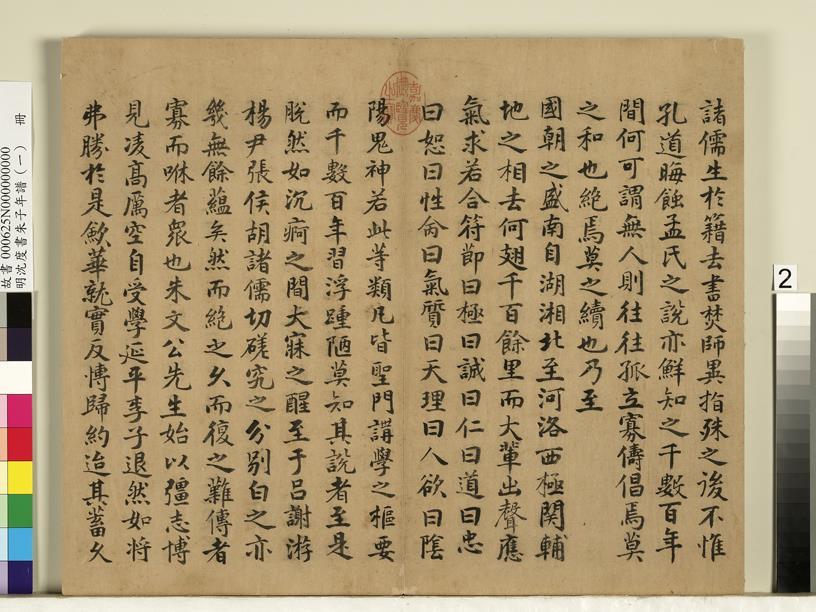 諸儒生於籍去書焚師異指殊之後不惟
孔道晦蝕孟氏之說亦鮮知之千數百年
間何可謂無人則往往孤立寡儔倡焉莫
之和也絶焉莫之續也乃至
國朝之盛南自湖湘北至河洛西極関輔
地之相去何翅千百餘里而大軰出聲應
氣求若合符節曰極曰誠曰仁曰道曰忠
曰恕曰性命曰氣質曰天理曰人欲曰陰
陽鬼神若此等類凡皆聖門講學之樞要
而千數百年習浮踵陋莫知其說者至是
脫然如沉痾之間大寐之醒至于呂謝游
楊尹張侯胡諸儒切磋究之分别白之亦
幾無餘蘊矣然而絶之久而復之難傳者
寡而咻者衆也朱文公先生始以彊志博
見凌髙厲空自受學延平李子退然如將
弗勝於是歛華就實反博歸約迨其蓄久
故書 000625N000000000
明沈度書朱子年譜(一) 冊
2